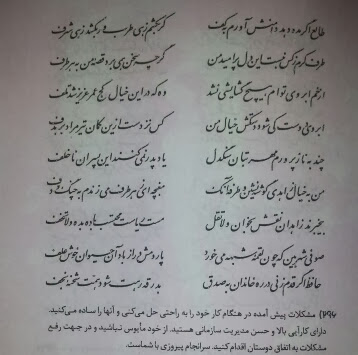 طالع اگر مدد دهد دامنش آورم به کف گر بکشم زهی طرب ور بکشد زهی شرف
طرف کرم ز کس نبست این دل پر امید من گرچه سخن همی برد قصه من به هر طرف
از خم ابروی توام هیچ گشایشی نشد وه که در این خیال کج عمر عزیز شد تلف
ابروی دوست کی شود دستکش خیال من کس نزدست از این کمان تیر مراد بر هدف
چند به ناز پرورم مهر بتان سنگدل یاد پدر نمی‌کنند این پسران ناخلف
من به خیال زاهدی گوشه‌نشین و طرفه آنک مغبچه‌ای ز هر طرف می‌زندم به چنگ و دف
بی‌خبرند زاهدان نقش بخوان و لاتقل مست ریاست محتسب باده بده و لاتخف
صوفی شهر بین که چون لقمه شبهه می‌خورد پاردمش دراز باد آن حیوان خوش علف
حافظ اگر قدم زنی در ره خاندان به صدق بدرقه رهت شود همت شحنه نجف
۲۹۶) مشکلات پیش آمده در هنگام کار خود را به راحتی حل می‌کنی و آنها را ساده می‌کنید.
دارای کارآیی بالا و حسن مدیریت سازمانی هستید. از خود مأیوس نباشید و در جهت رفع
مشکلات به اتفاق دوستان اقدام کنید. سرانجام پیروزی با شماست.